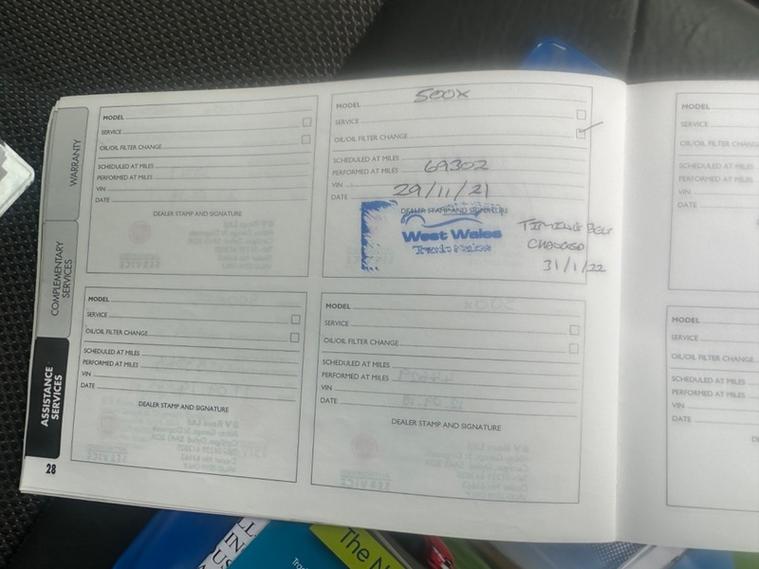 WARRANTY
COMPLEMENTARY
SERVICES
ASSISTANCE
SERVICES
28
MODEL
SERVICE
OIL/OIL FILTER CHANGE
SCHEDULED AT MILES
PERFORMED AT MILES
VIN
DATE
DEALER STAMP AND SIGNATURE
MODEL 500X
SERVICE
OIL/OIL FILTER CHANGE
SCHEDULED AT MILES
PERFORMED AT MILES 69302
VIN
DATE 29/11/21
DEALER STAMP AND SIGNATURE
West Wales
TIMING BELT
CHANGED
31/1/22
MODEL
SERVICE
OIL/OIL FILTER CHANGE
SCHEDULED AT MILES
PERFORMED AT MILES
VIN
DATE
DEALER STAMP AND SIGNATURE
MODEL
SERVICE
OIL/OIL FILTER CHANGE
SCHEDULED AT MILES
PERFORMED AT MILES
VIN
DATE
DEALER STAMP AND SIGNATURE
MODEL
SERVICE
OIL/OIL FILTER CHANG
SCHEDULED AT MILES
PERFORMED AT MILES
VIN
DATE
MODEL
SERVICE
OIL/OIL FILTER CHANGE
SCHEDULED AT MILES
PERFORMED AT MILES
VIN
DATE
The N